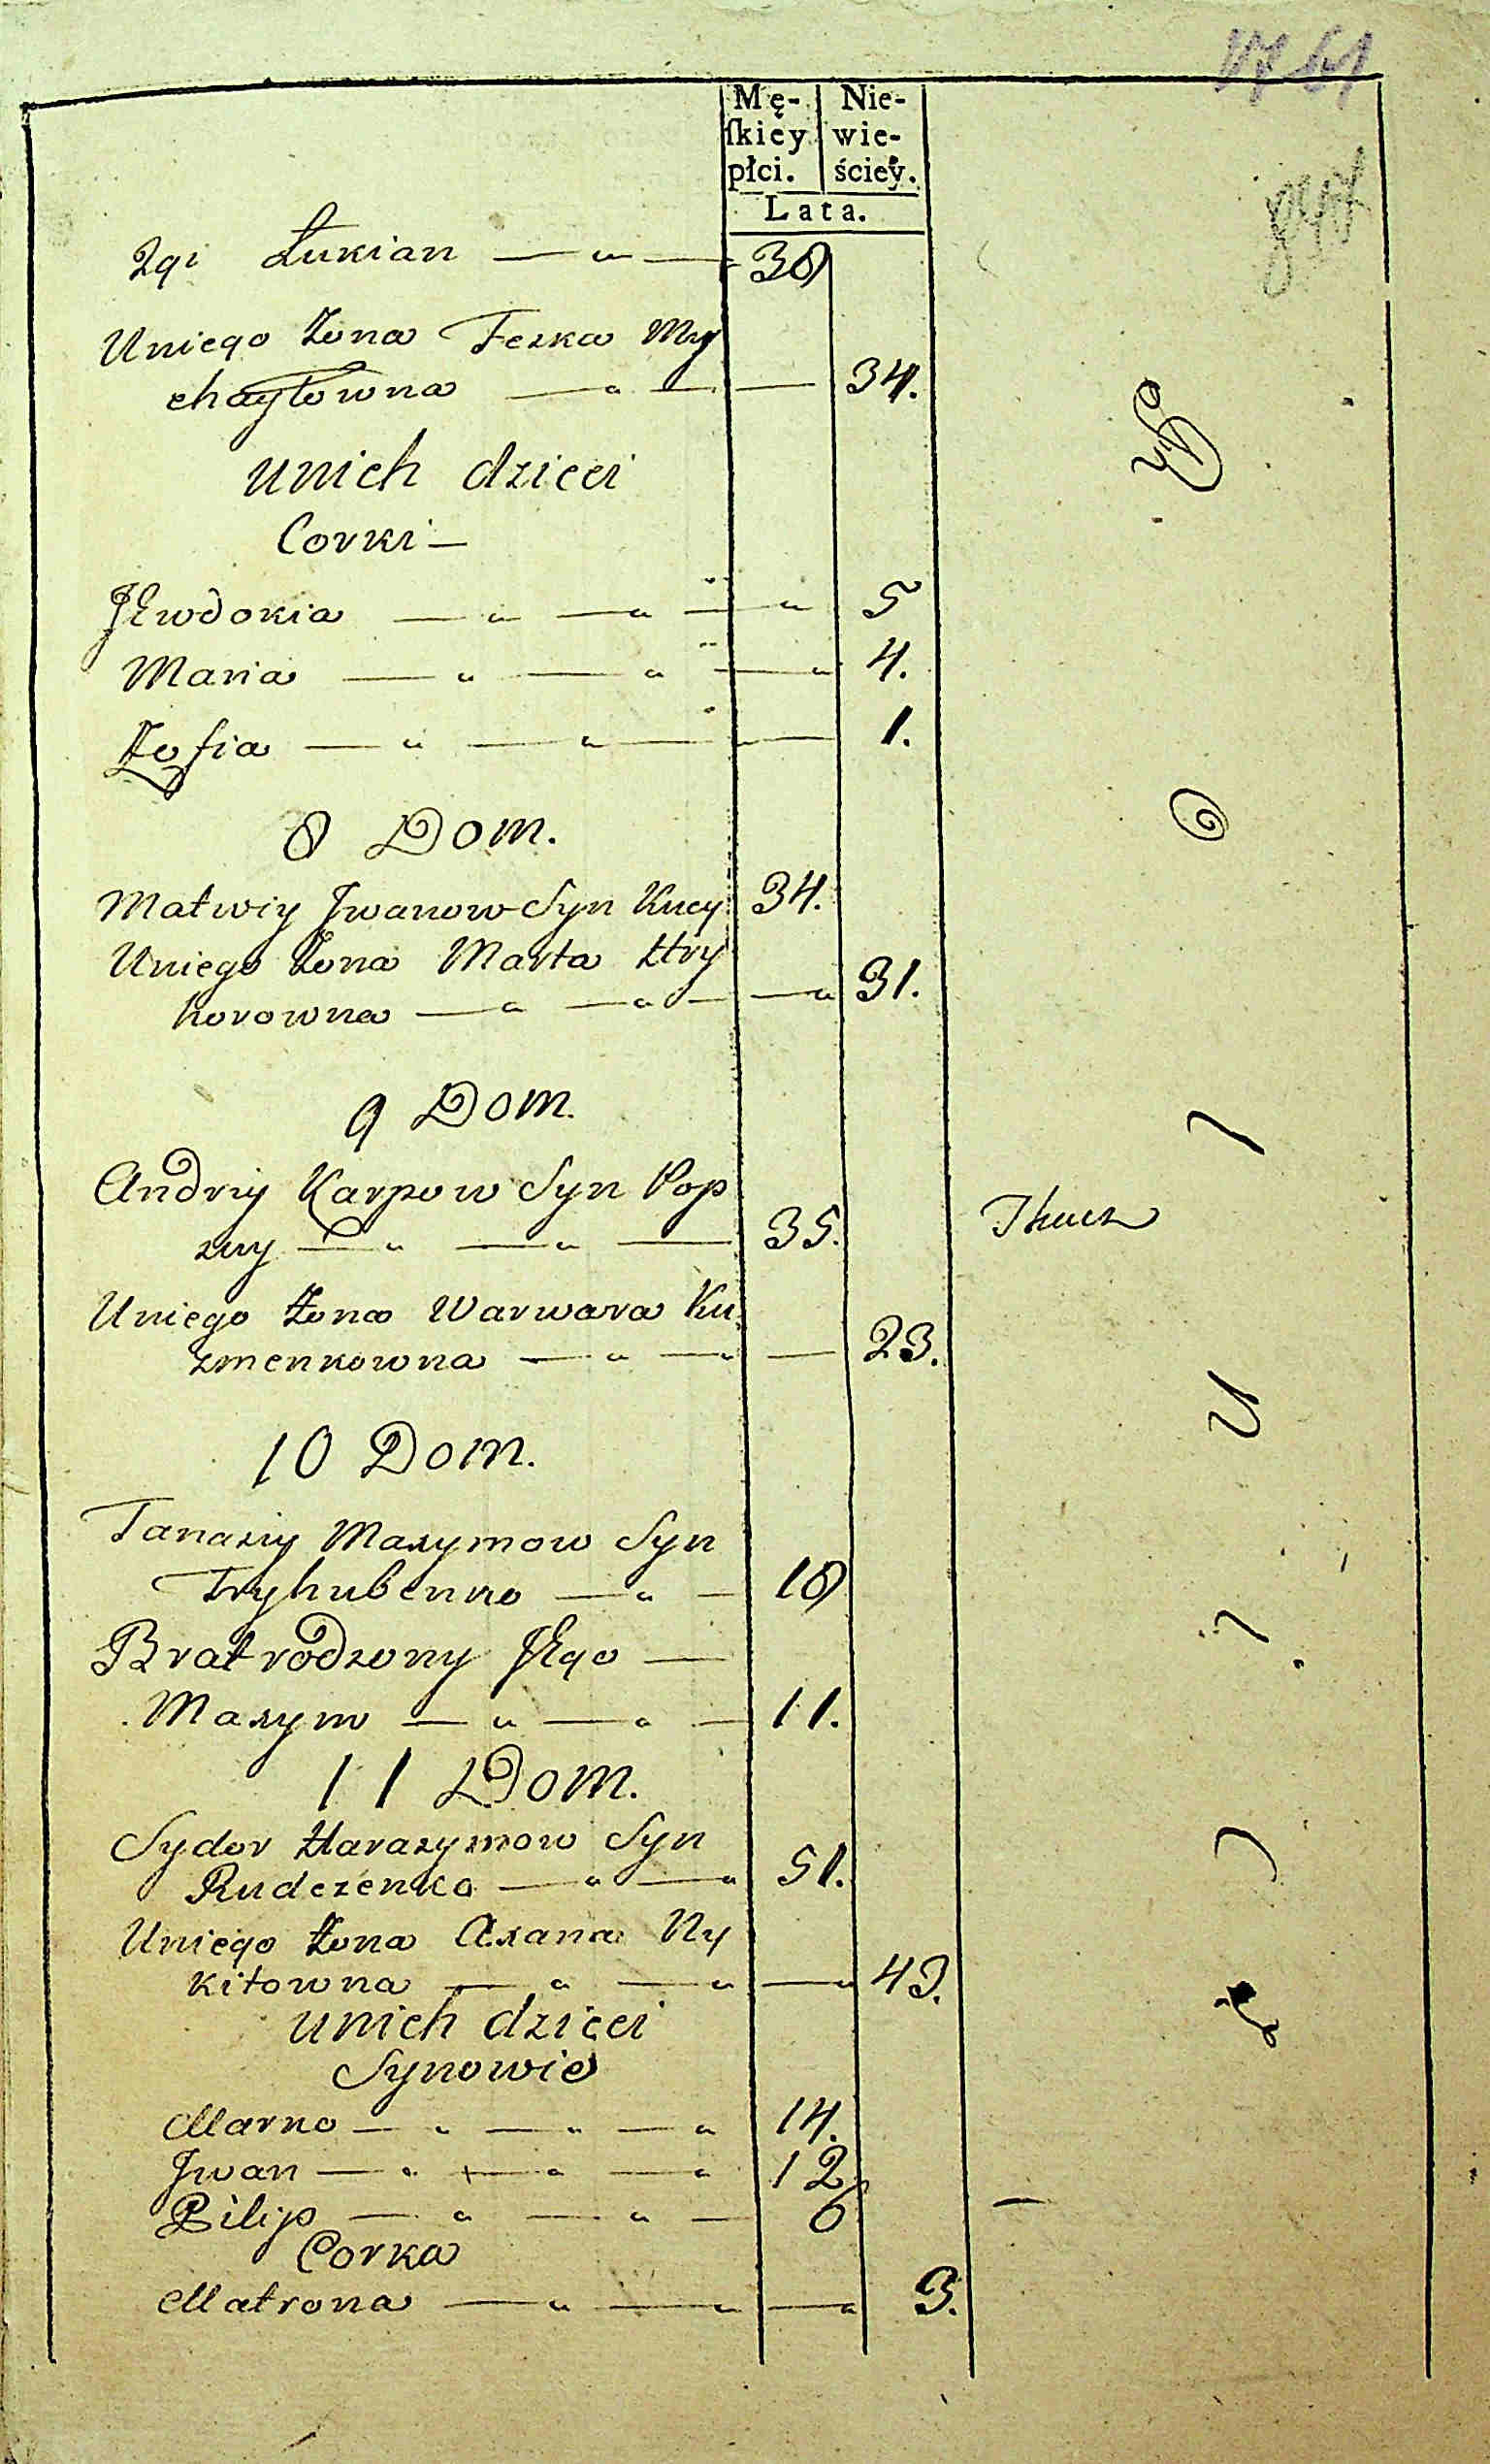 Mę- Nie-
ſkiey wie-
płci. ściey.
Lata.
2gi Łukian 38
Uniego Żona Feska My
chayłowna 34.
Unich dzieci
Corki
JEwdokia 5
Maria 4.
Zofia 1.
8 Dom.
Matwiy Jwanow Syn Kucy 34.
Uniego Żona Marta Hry
horowna 31.
9 Dom.
Andriy Karpow Syn Pop
zuy 35.
Tkacz
Uniego Żona Warwara Ku
zmenkowna 23.
10 Dom.
Tanasiy Maxymow Syn
Tryhubenko 18
Brat rodzony JEgo
Maxym 11.
11 Dom.
Sydor Harasymow Syn
Rudczenko 51.
Uniego Żona Axana Ny
kitowna 43.
Unich dzieci
Synowie
Marko 14.
Jwan 12
Pilip 6
Corka
Matrona 3.